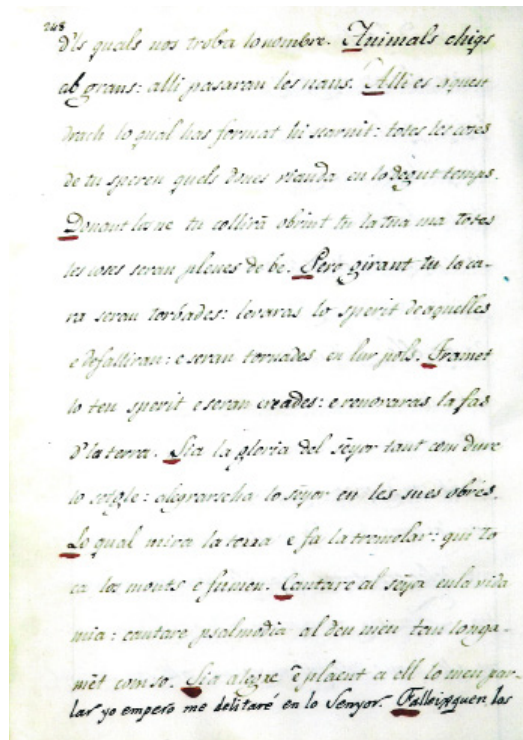 248
d'ls quals nos troba lo nombre. Animals chiqs
ab grans: alli pasaran les naus. Alli es aquen
drach lo qual has format hi scarnit: totes les coses
de tu speren quels dones vianda en lo degut temps.
Donant lo ne tu collirã obrint tu la tua ma totes
les coses seran plenes de be. Pero girant tu la ca-
ra seran torbades: levaras lo sperit de aquelles
e defalliran: e seran tornades en lur pols. Tramet
lo teu sperit e seran creades: e renovaras la fas
d'la terra. Sia la gloria del sẽyor tant com dure
lo setgle: alegrarseha lo sẽyor en les sues obres.
Lo qual mira la terra e fa la tremolar: qui to
ca los monts e fumen. Cantare al sẽyor en la vida
mia: cantare psalmodia al deu meu tan longa-
mẽt com so. Sia alegre ẽ placent a ell lo meu par-
lar yo empero me delitaré en lo Senyor. Falleixquen los